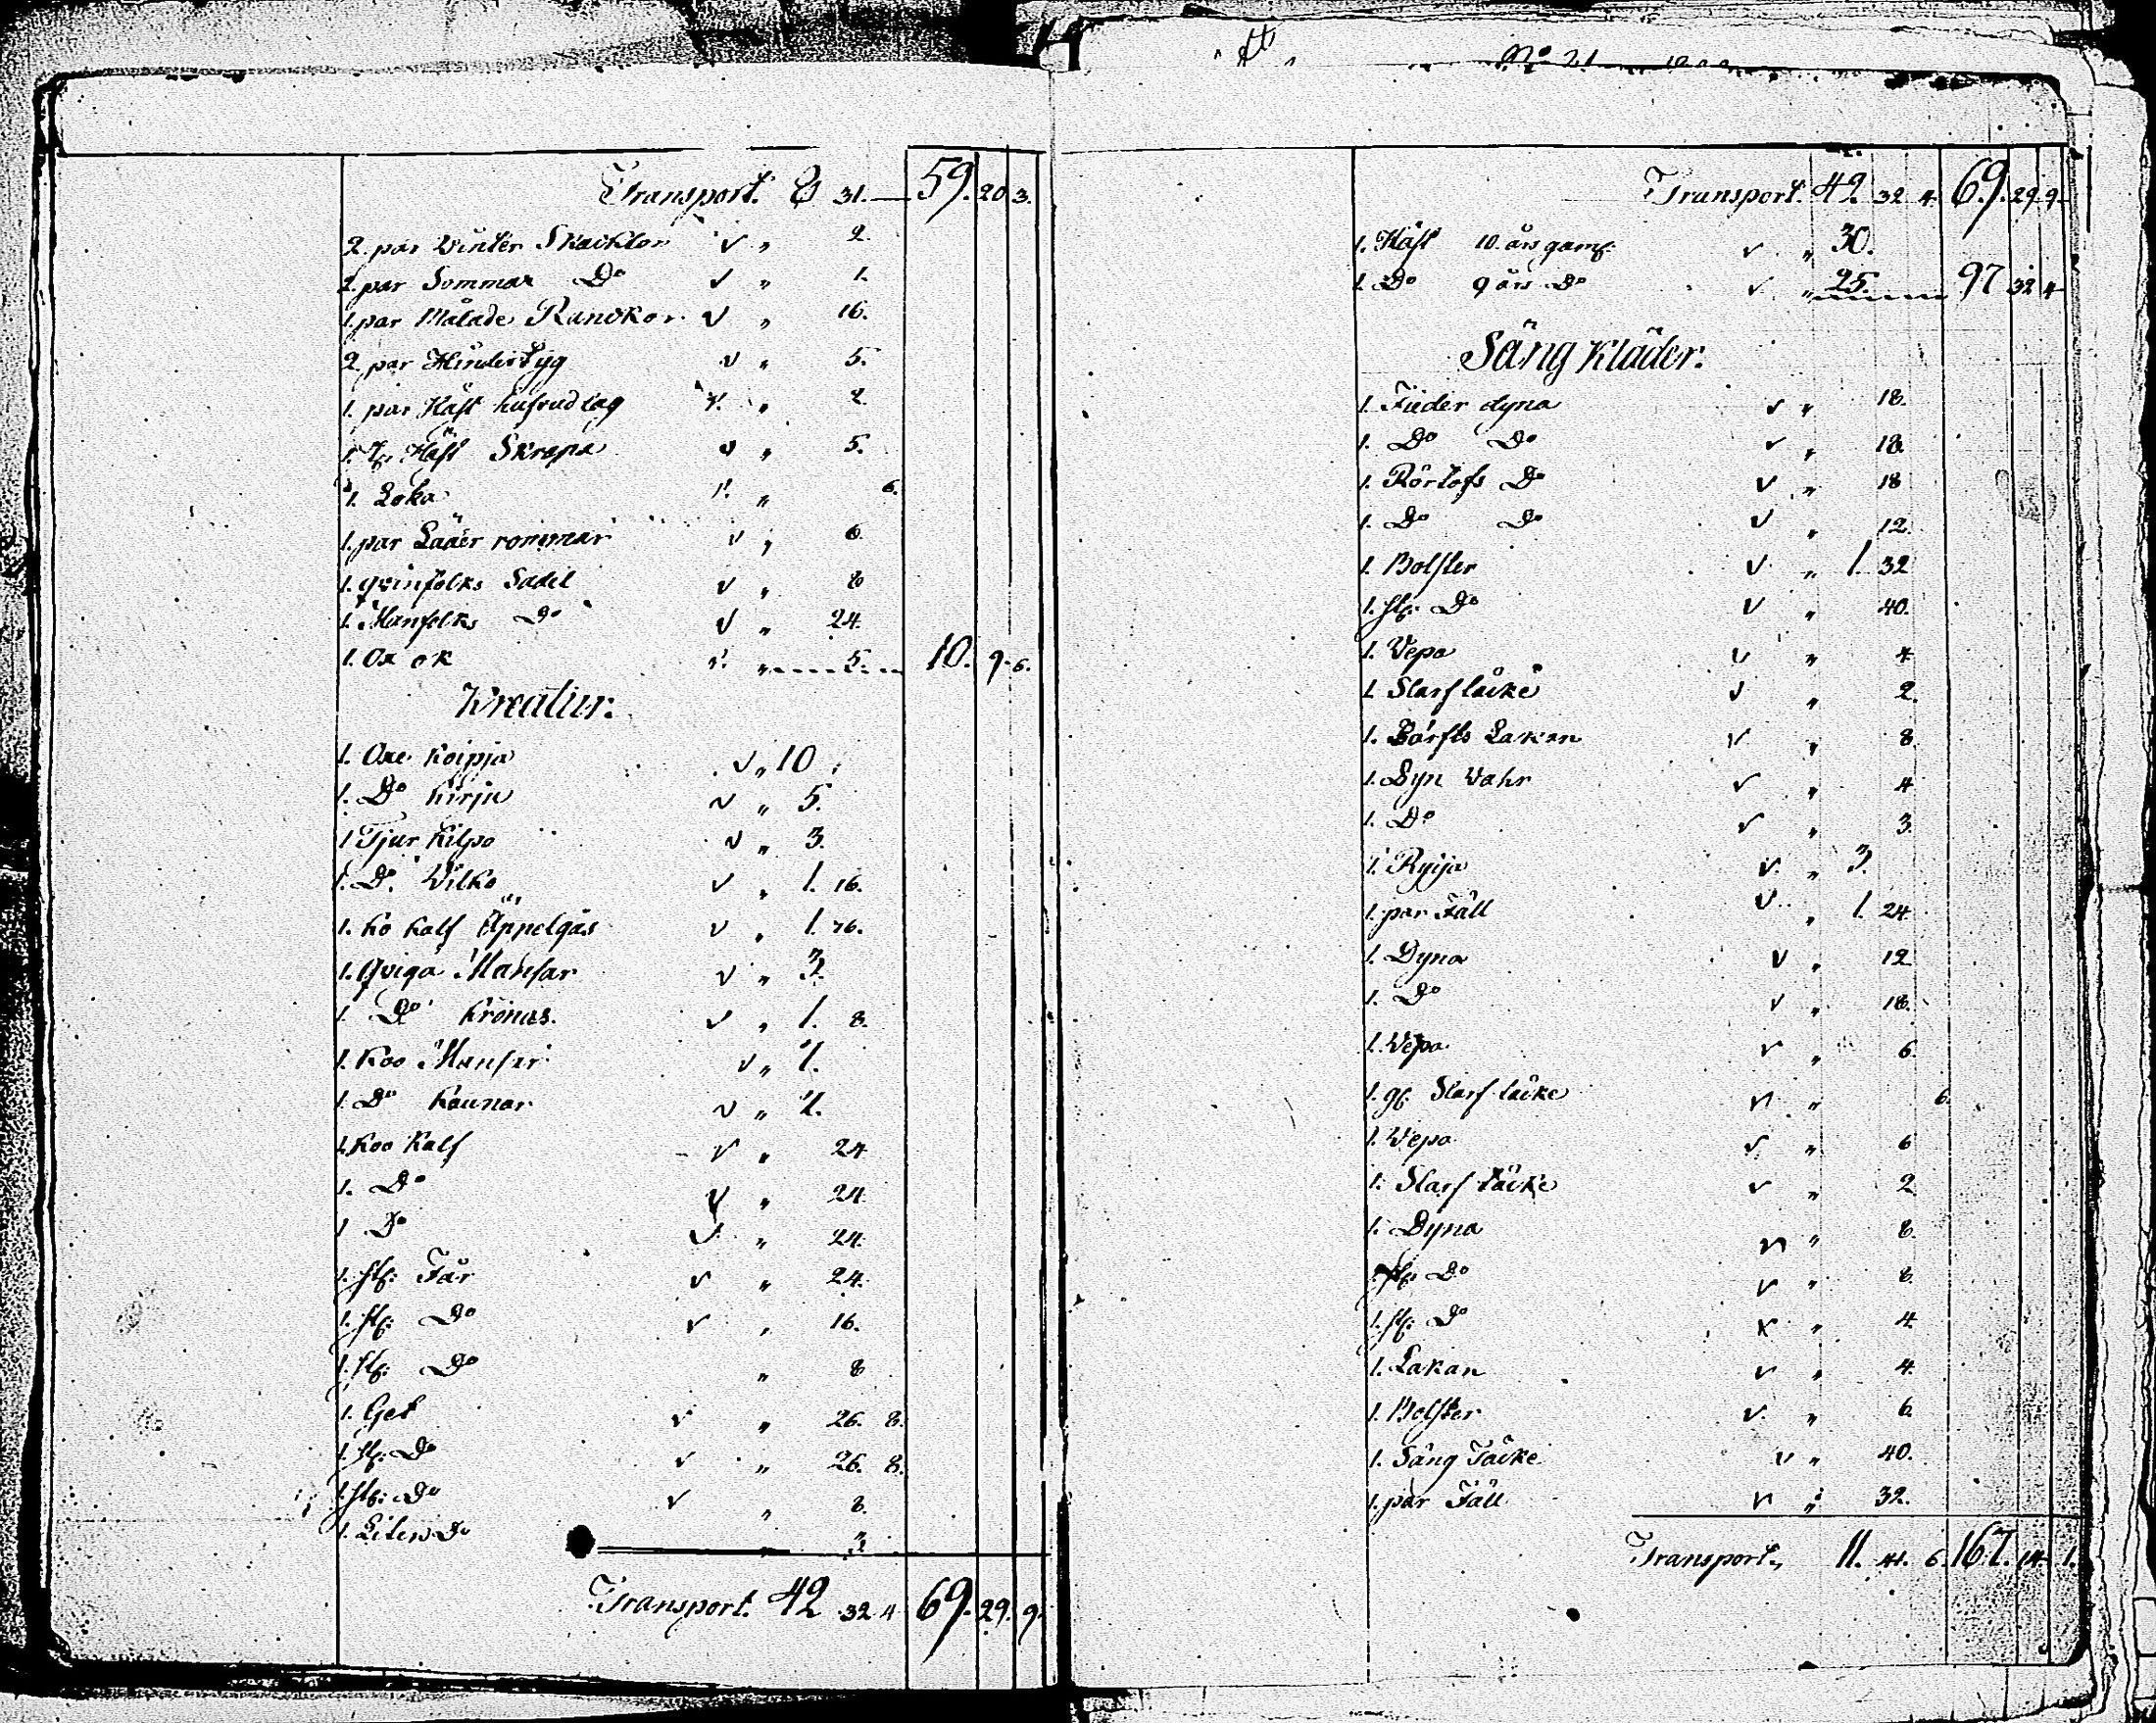 Transport. 8 31.— 59. 20 3.
2. par Winter Skacklor √ „ 2.
2. par Sommar Do √ „ 1.
1. par Målade √ „ 16.
2. par √ „ 5.
1. par Häst hufvudlag √ „ 2.
1. st: Häst Skrapa √ „ 5.
1. Loka √ „ 6.
1. par Läder rommar √ „ 6.
1. qvinfolks Sadel √ „ 8
1. Manfolks Do √ „ 24.
1. Ox ok √ „ 5. 10. 9. 6.
Kreatur:
1. Oxe Koipja √ „ 10
1. Do Kirju √ „ 5.
1 Tjur Kilpo √ „ 3.
1. Do Wilko √ „ 1. 16.
1. Ko Kalf Äppelgås √ „ 1. 16.
1. Qviga Mansar √ „ 3.
1. Do Krönas √ „ 1. 8.
1. Koo Mansar √ „
1. Do Kaunar √ „
1. Koo Kalf √ „ 24
1. Do √ „ 24
1 Do √ „ 24.
1. st: Får √ „ 24.
1. st: Do √ „ 16.
1. st: Do „ 8
1. Get √ „ 26. 8.
1. st: Do √ „ 26. 8.
1. st: Do √ „ 8.
1. Liten Do „
Transport. 42 32 4 69. 29. 9.
No 21
Transport. 42. 32 4. 69. 29. 9.
1. Häst 10. års gam: √ „ 30.
1. Do 9 års Do √ „ 25. 97 32 4
Säng Kläder.
1. Fieder dyna √ „ 18.
1. Do Do √ „ 18.
1. Rörlofs Do √ „ 18
1. Do Do √ „ 12.
1. Bolster √ „ 1. 32
1. st: Do √ „ 40.
1. Vepa √ „ 4
1. Slarf täcke √ „ 2.
1. Bårfts Lakan √ „ 8.
1. Dyn Wahr √ „ 4
1. Do √ „ 3.
1. Ryija √ „ 3.
1. par Fäll √ „ 1. 24
1. Dyna √ „ 12
1. Do √ „ 18.
1. Wepa √ „ 6
1. gl: Slarf täcke √ „ 6.
1. Wepa √ „ 6
1. Slarf täcke √ „ 2
1. Dyna √ „ 8.
1. st: Do √ „ 8.
1. st: Do √ „ 4.
1. Lakan √ „ 4.
1. Bolster √ „ 6.
1. Säng Täcke √ „ 40.
1. par Fäll √ „ 32.
Transport, 11. 41. 6. 167. 14. 1.